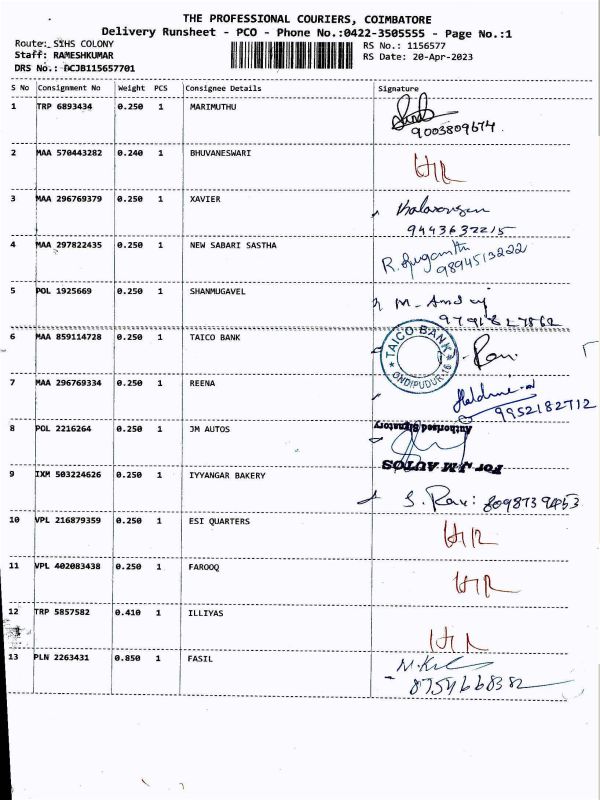 THE PROFESSIONAL COURIERS, COIMBATORE
Delivery Runsheet - PCO - Phone No.:0422-3505555 - Page No.:1
Route: SIHS COLONY
RS No.: 1156577
Staff: RAMESHKUMAR
RS Date: 20-Apr-2023
DRS No.: DCJB115657701
S No Consignment No Weight PCS Consignee Details Signature
1 TRP 6893434 0.250 1 MARIMUTHU
9003809674
2 MAA 570443282 0.240 1 BHUVANESWARI
3 MAA 296769379 0.250 1 XAVIER
9443632215
4 MAA 297822435 0.250 1 NEW SABARI SASTHA
9894513222
5 POL 1925669 0.250 1 SHANMUGAVEL
6 MAA 859114728 0.250 1 TAICO BANK
TAICO BANK
ONDIPUDUR-16
7 MAA 296769334 0.250 1 REENA
9952182712
8 POL 2216264 0.250 1 JM AUTOS
For JM AUTOS
Authorised Signatory
9 IXM 503224626 0.250 1 IYYANGAR BAKERY
S. Ravi: 8098739453
10 VPL 216879359 0.250 1 ESI QUARTERS
11 VPL 402083438 0.250 1 FAROOQ
12 TRP 5857582 0.410 1 ILLIYAS
13 PLN 2263431 0.850 1 FASIL
8754668382